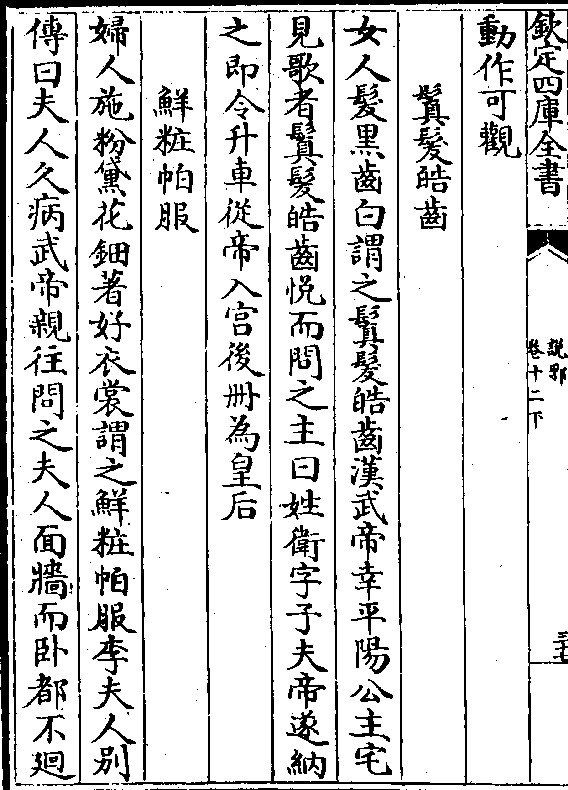 欽定四庫全書
說郛
卷十二下
動作可觀
鬒髮皓齒
女人髮黒齒白謂之鬒髮皓齒漢武帝幸平陽公主宅
見歌者鬒髮皓齒悦而問之主曰姓衛字子夫帝遂納
之即令升車從帝入宫後冊為皇后
鮮粧帕服
婦人施粉黛花鈿著好衣裳謂之鮮粧帕服李夫人别
傳曰夫人久病武帝親往問之夫人面牆而卧都不廻